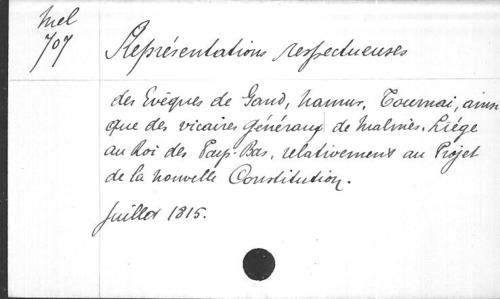 Mel
707
Représentations respectueuses
des Evêques de Gand, Namur, Tournai, ainsi
que des vicaires généraux de Malines, Liége
au Roi des Pays-Bas, relativement au Projet
de la nouvelle Constitution.
Juillet 1815.